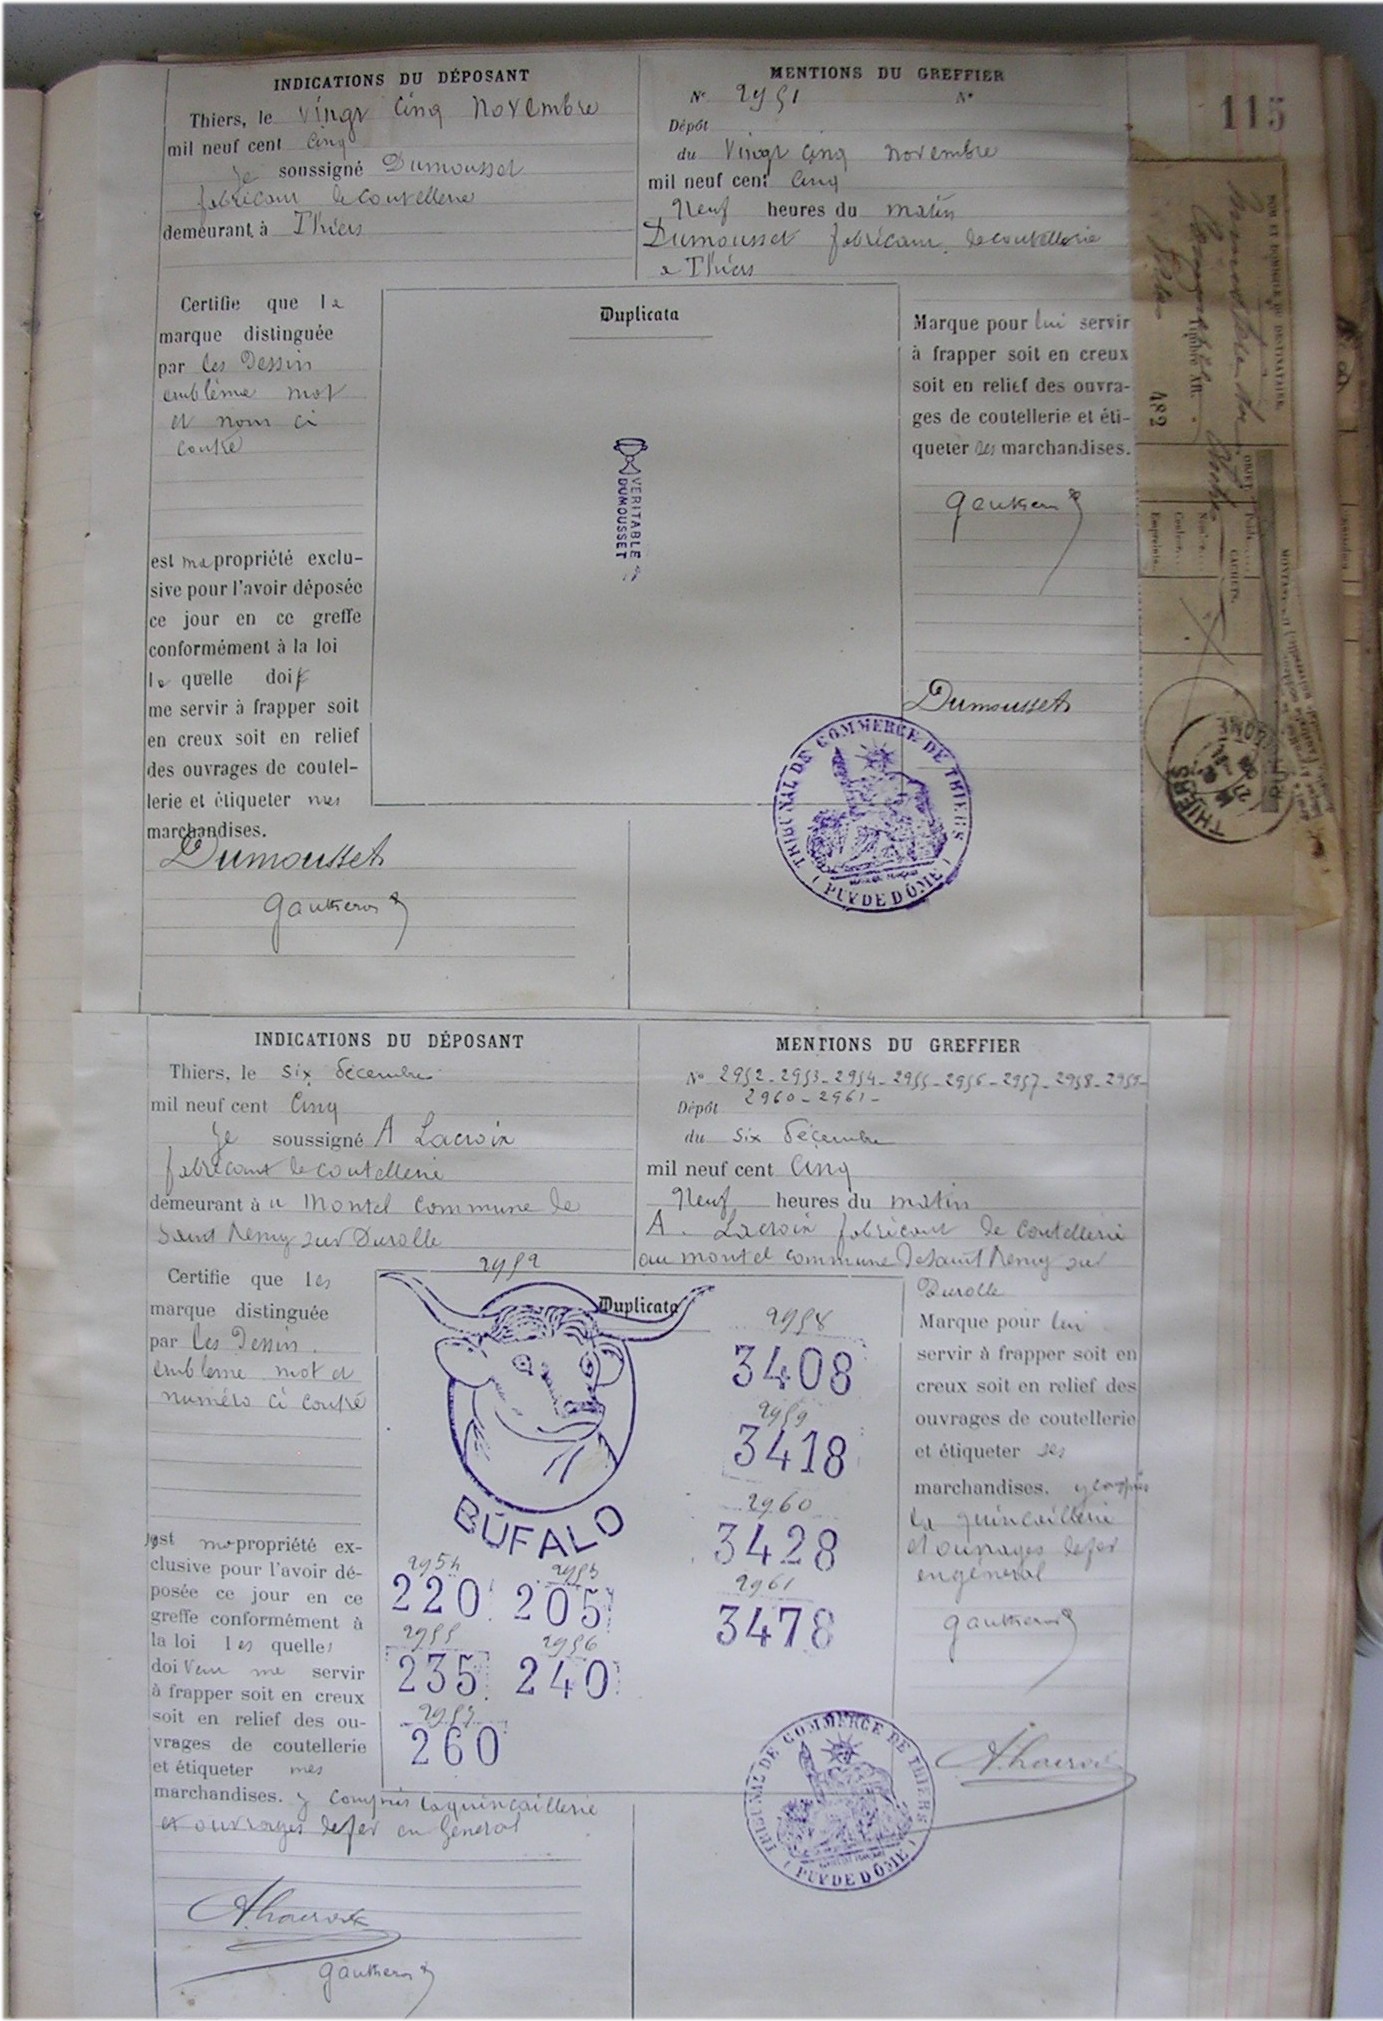 115
INDICATIONS DU DÉPOSANT
Thiers, le vingt cinq novembre
mil neuf cent cinq
je soussigné Dumousset
fabricant de coutellerie
demeurant à Thiers
MENTIONS DU GREFFIER
N° 2951 N°
Dépôt
du vingt cinq novembre
mil neuf cent cinq
Neuf heures du matin
Dumousset fabricant de coutellerie
a Thiers
Certifie que la
marque distinguée
par les Dessin
emblème mot
et nom ci
contre
est ma propriété exclu-
sive pour l'avoir déposée
ce jour en ce greffe
conformément à la loi
la quelle doit
me servir à frapper soit
en creux soit en relief
des ouvrages de coutel-
lerie et étiqueter mes
marchandises.
Dumousset
Gautheron
Duplicata
VERITABLE
DUMOUSSET
Marque pour lui servir
à frapper soit en creux
soit en relief des ouvra-
ges de coutellerie et éti-
queter ses marchandises.
Gautheron
Dumousset
TRIBUNAL DE COMMERCE DE THIERS
(PUY DE DÔME)
NOM ET DOMICILE DU DESTINATAIRE.
482
OBJET
CACHETS.
Nombre
Couleur
Empreinte
THIERS
PUY-DE-DOME
INDICATIONS DU DÉPOSANT
Thiers, le six décembre
mil neuf cent cinq
je soussigné A Lacroix
fabricant de coutellerie
demeurant à u Montel commune de
Saint Remy sur Durolle
MENTIONS DU GREFFIER
N° 2952-2953-2954-2955-2956-2957-2958-2959-
2960-2961-
Dépôt
du six décembre
mil neuf cent cinq
Neuf heures du matin
A. Lacroix fabricant de coutellerie
au montel commune de Saint Remy sur
Durolle
Certifie que les
marque distinguée
par les Dessin
embleme mot et
numéro ci contre
est ma propriété ex-
clusive pour l'avoir dé-
posée ce jour en ce
greffe conformément à
la loi les quelles
doivent me servir
à frapper soit en creux
soit en relief des ou-
vrages de coutellerie
et étiqueter mes
marchandises. y compris la quincaillerie
et ouvrages de fer en General
A. Lacroix
Gautheron
2952
Duplicata
BUFALO
2954 2953
220 205
2955 2956
235 240
2957
260
2958
3408
2959
3418
2960
3428
2961
3478
Marque pour lui
servir à frapper soit en
creux soit en relief des
ouvrages de coutellerie
et étiqueter ses
marchandises. y compris
la quincaillerie
et ouvrages de fer
en general
Gautheron
A. Lacroix
TRIBUNAL DE COMMERCE DE THIERS
(PUY DE DÔME)